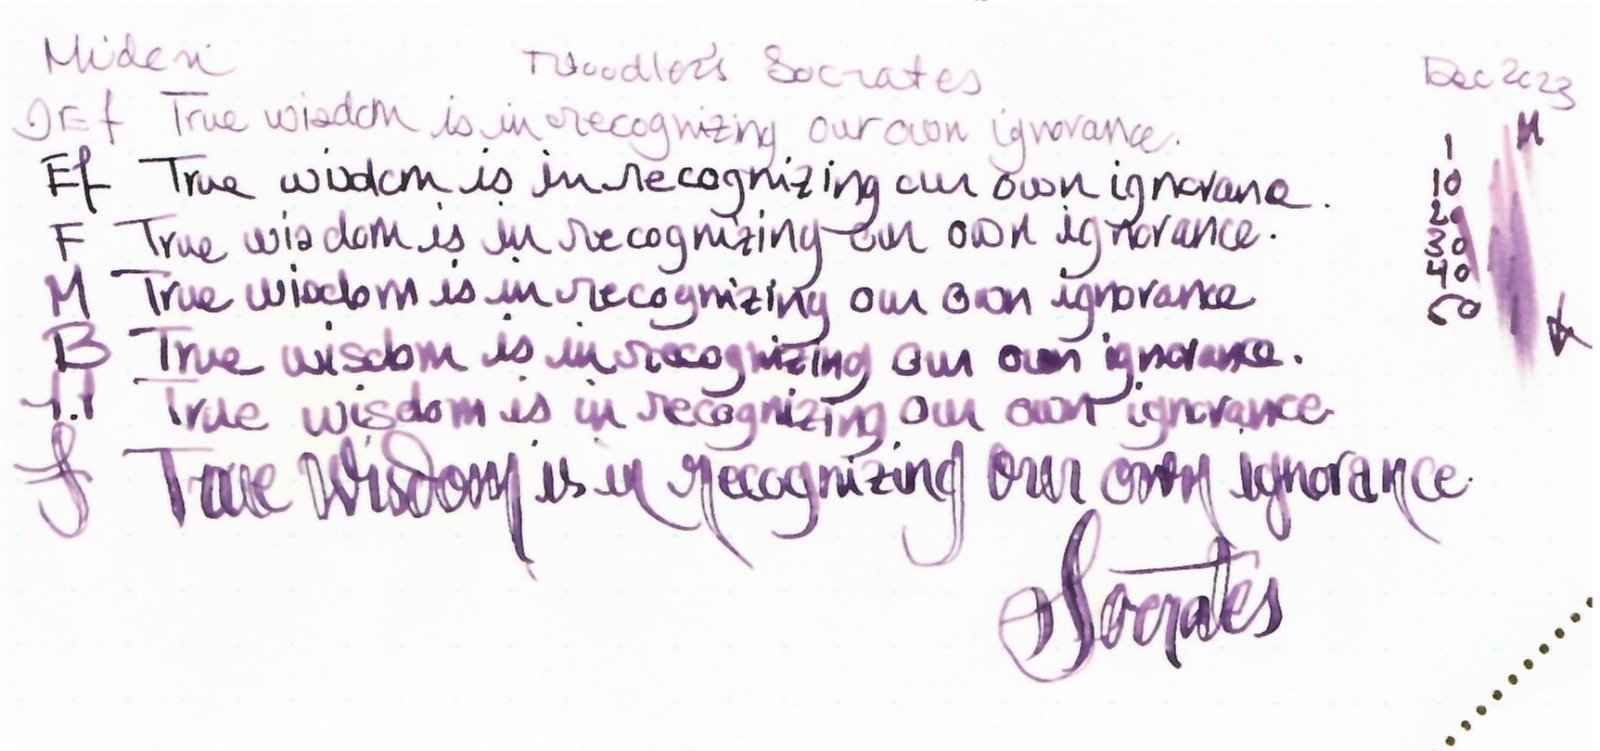 Midori Noodler's Socrates Dec 2023
JEf True wisdom is in recognizing our own ignorance.
Ef True wisdom is in recognizing our own ignorance.
F True wisdom is in recognizing our own ignorance.
M True wisdom is in recognizing our own ignorance
B True wisdom is in recognizing our own ignorance.
1.1 True wisdom is in recognizing our own ignorance
f True Wisdom is in recognizing our own ignorance.
Socrates
M
1
10
20
30
40
50